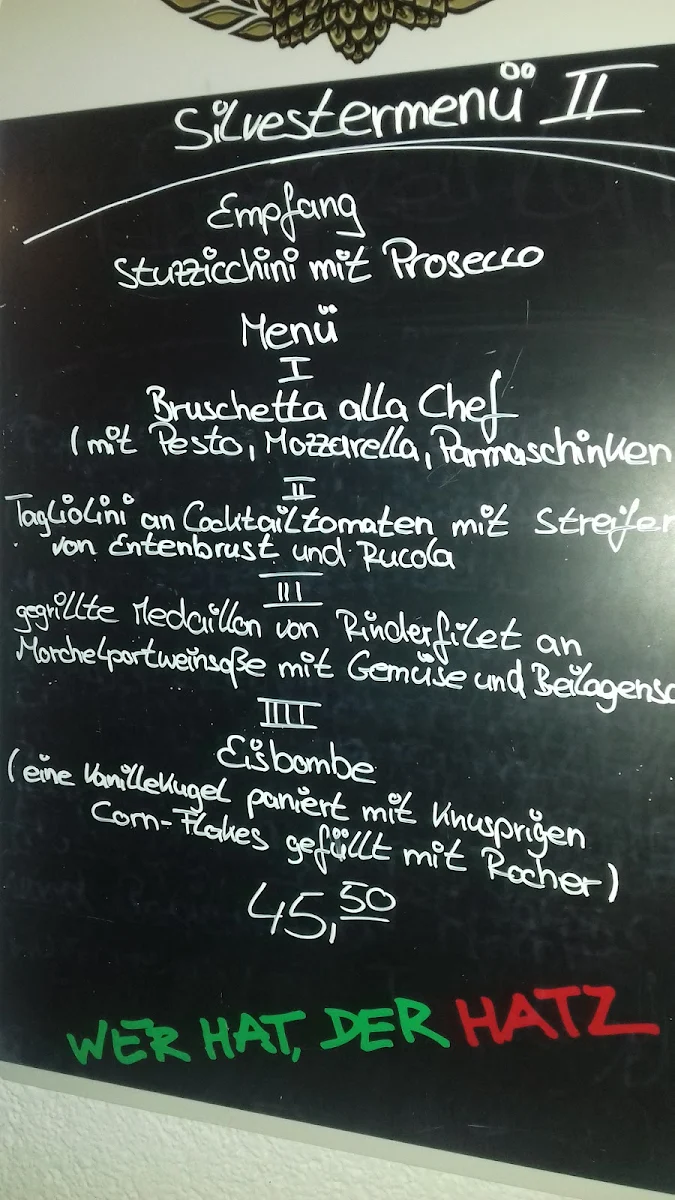 Silvestermenü II
Empfang
Stuzzicchini mit Prosecco
Menü
I
Bruschetta alla Chef
(mit Pesto, Mozzarella, Parmaschinken
II
Tagliolini an Cocktailtomaten mit Streifen
von Entenbrust und Rucola
III
gegrillte Medaillon von Rinderfilet an
Morchelportweinsoße mit Gemüse und
IIII
Eisbombe
(eine Vanillekugel paniert mit Knusprigen
Corn-Flakes gefüllt mit Rocher)
45,50
WER HAT, DER HATZ